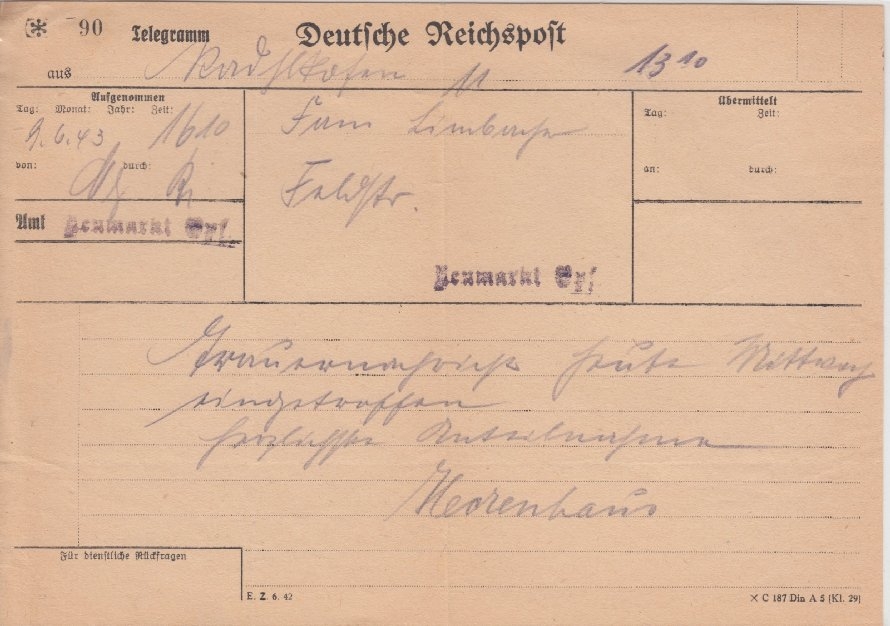 90 Telegramm Deutsche Reichspost
aus 11 13 10
Aufgenommen
Tag: Monat: Jahr: Zeit:
9.6.43 1610
von: durch:
Amt Neumarkt Opf.
Fam Limbacher
Feldstr.
Neumarkt Opf
Übermittelt
Tag: Zeit:
an: durch:
Trauernachricht heute Mittwoch
eingetroffen
herzlichste Anteilnahme
Für dienstliche Rückfragen
E. Z. 6. 42
× C 187 Din A 5 (Kl. 29)